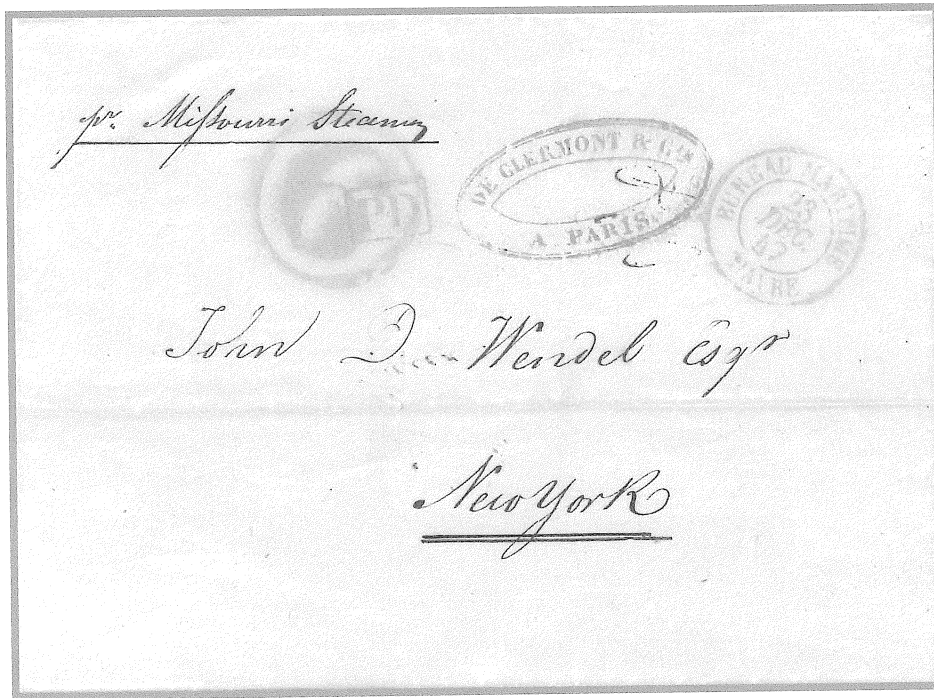 pr. Missouri Steamer
PD
DE CLERMONT & Cie
A PARIS
BUREAU MARITIME
23
DEC.
47
HAVRE
John D. Wendel Esqr
New York